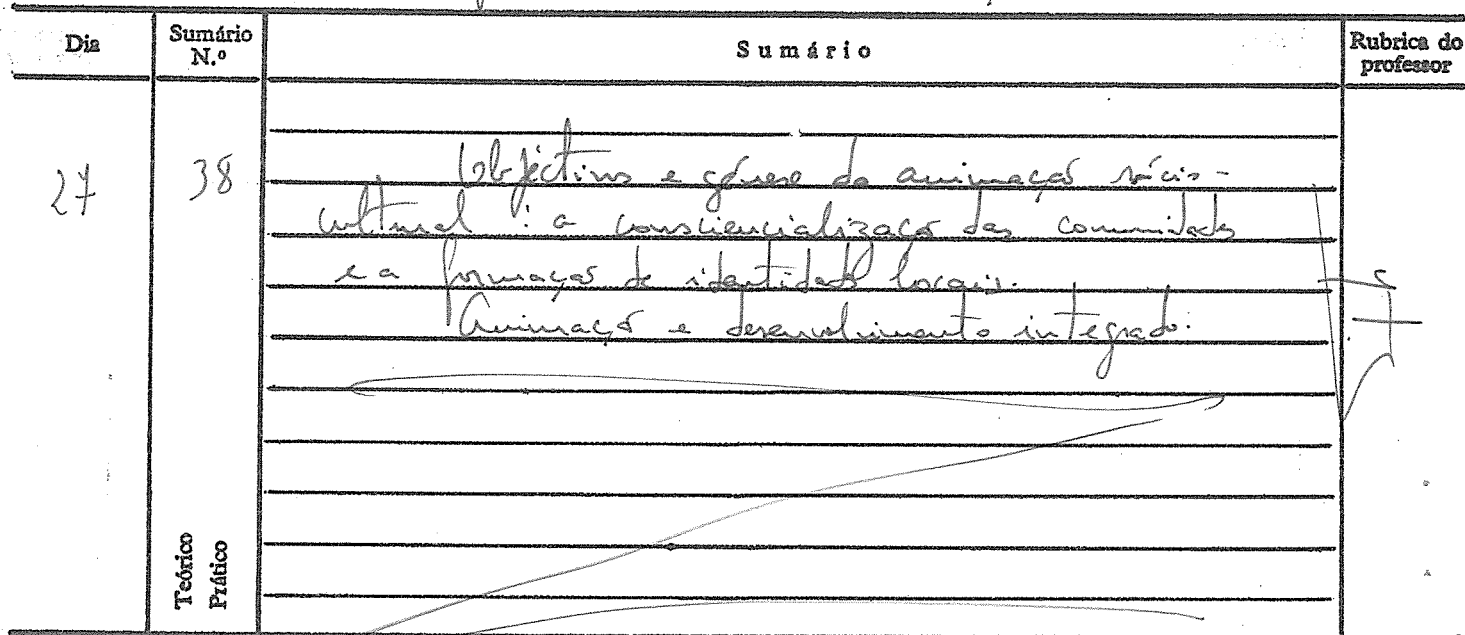 Dia
Sumário N.º
Sumário
Rubrica do professor
27
38
Objectivos e género da animação sócio-
cultural : a consciencialização das comunidades
e a formação de identidades locais.
Animação e desenvolvimento integrado.
Teórico
Prático